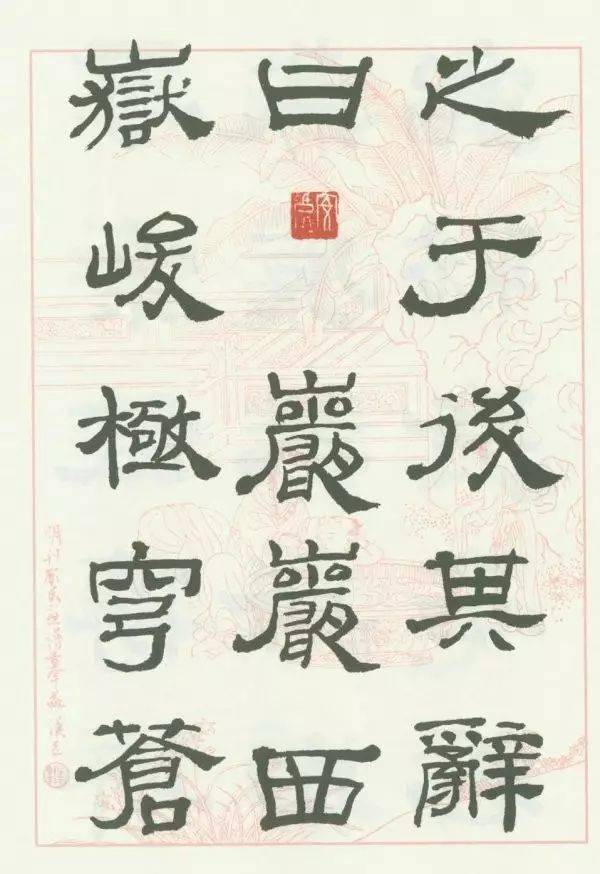 之于後其辭
曰巖巖西
嶽峻極穹蒼